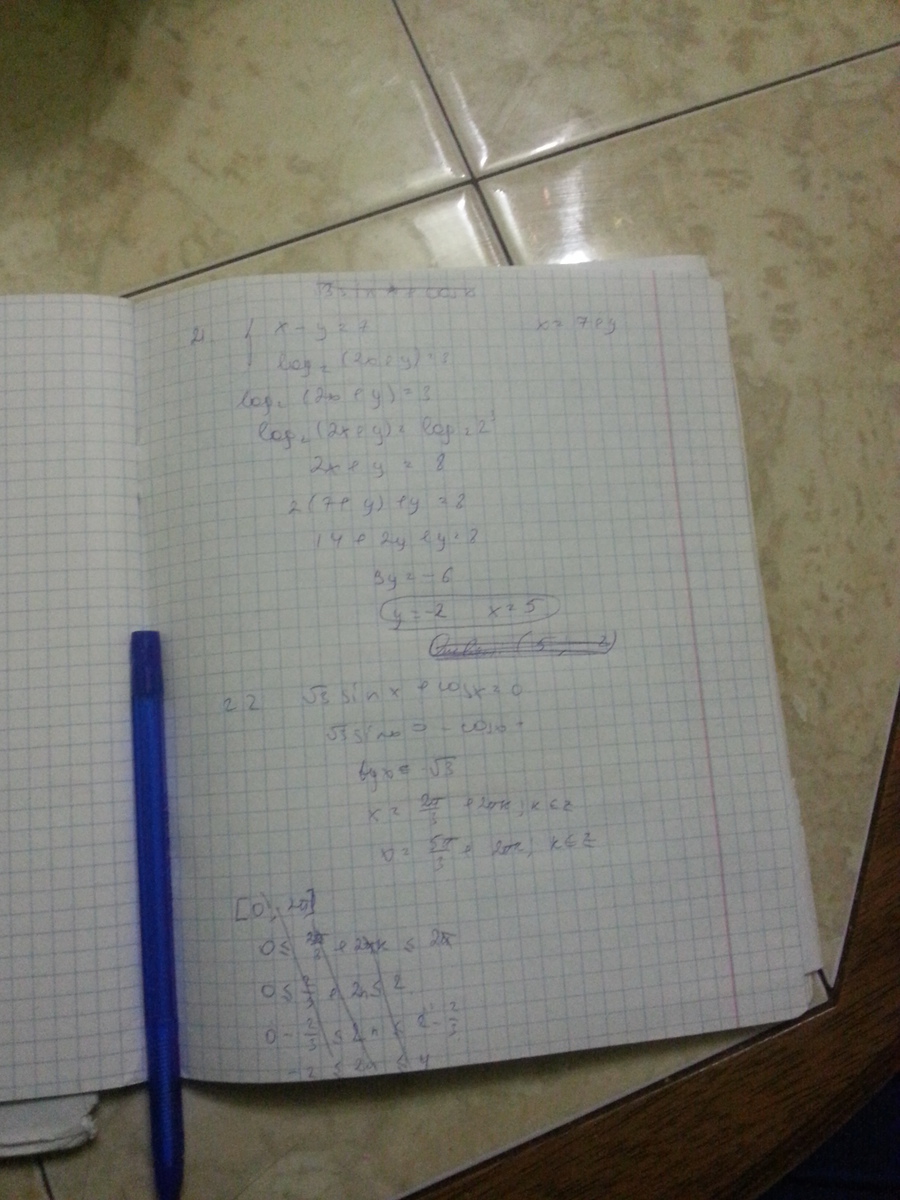 2.1 { x - y = 7 x = 7 + y
log₂ (2x + y) = 3
log₂ (2x + y) = 3
log₂ (2x + y) = log₂ 2³
2x + y = 8
2(7 + y) + y = 8
14 + 2y + y = 8
3y = -6
y = -2 x = 5
2.2 √3 sin x + cos x = 0
√3 sin x = - cos x
x = 2π/3 + 2πk; k ∈ Z
x = 5π/3 + 2πk; k ∈ Z
[0; 2π]
0 ≤ 2π/3 + 2πk ≤ 2π
0 ≤ 2/3 + 2n ≤ 2
0 - 2/3 ≤ 2n ≤ 2 - 2/3